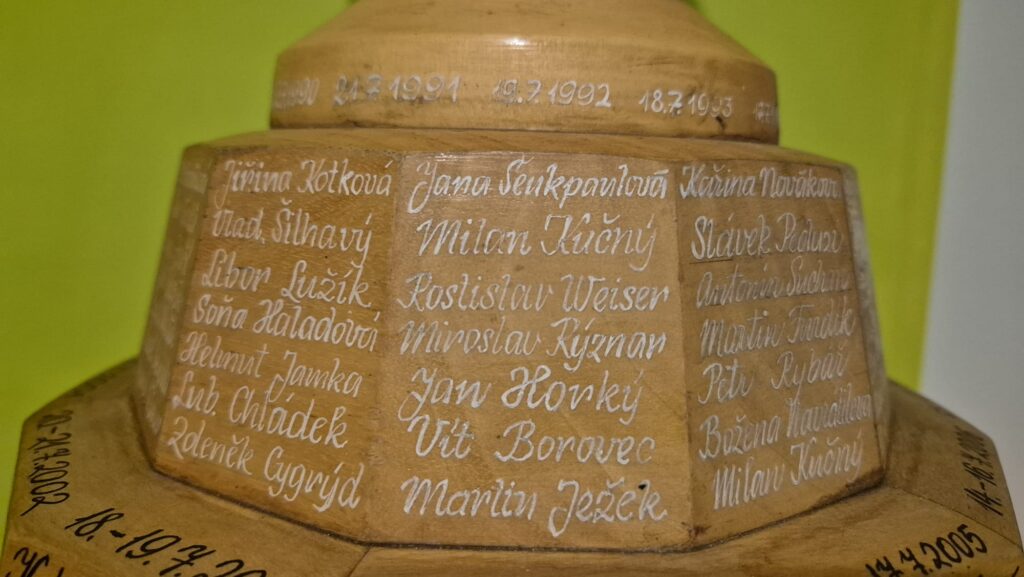 21.7.1991 19.7.1992 18.7.1993
Jiřina Kotková
Vlad. Šilhavý
Libor Lužík
Soňa Haladová
Helmut Jamka
Lub. Chládek
Zdeněk Cygrýd
Jana Šenkpaulová
Milan Kučný
Rostislav Weiser
Miroslav Rýznar
Jan Horký
Vít Borovec
Martin Ježek
Kařina Novákova
Slávek
Antonín
Martin
Petr Rybář
Božena
Milan Kučný
20.-21.7.2002
18.-19.7.
17.7.2005